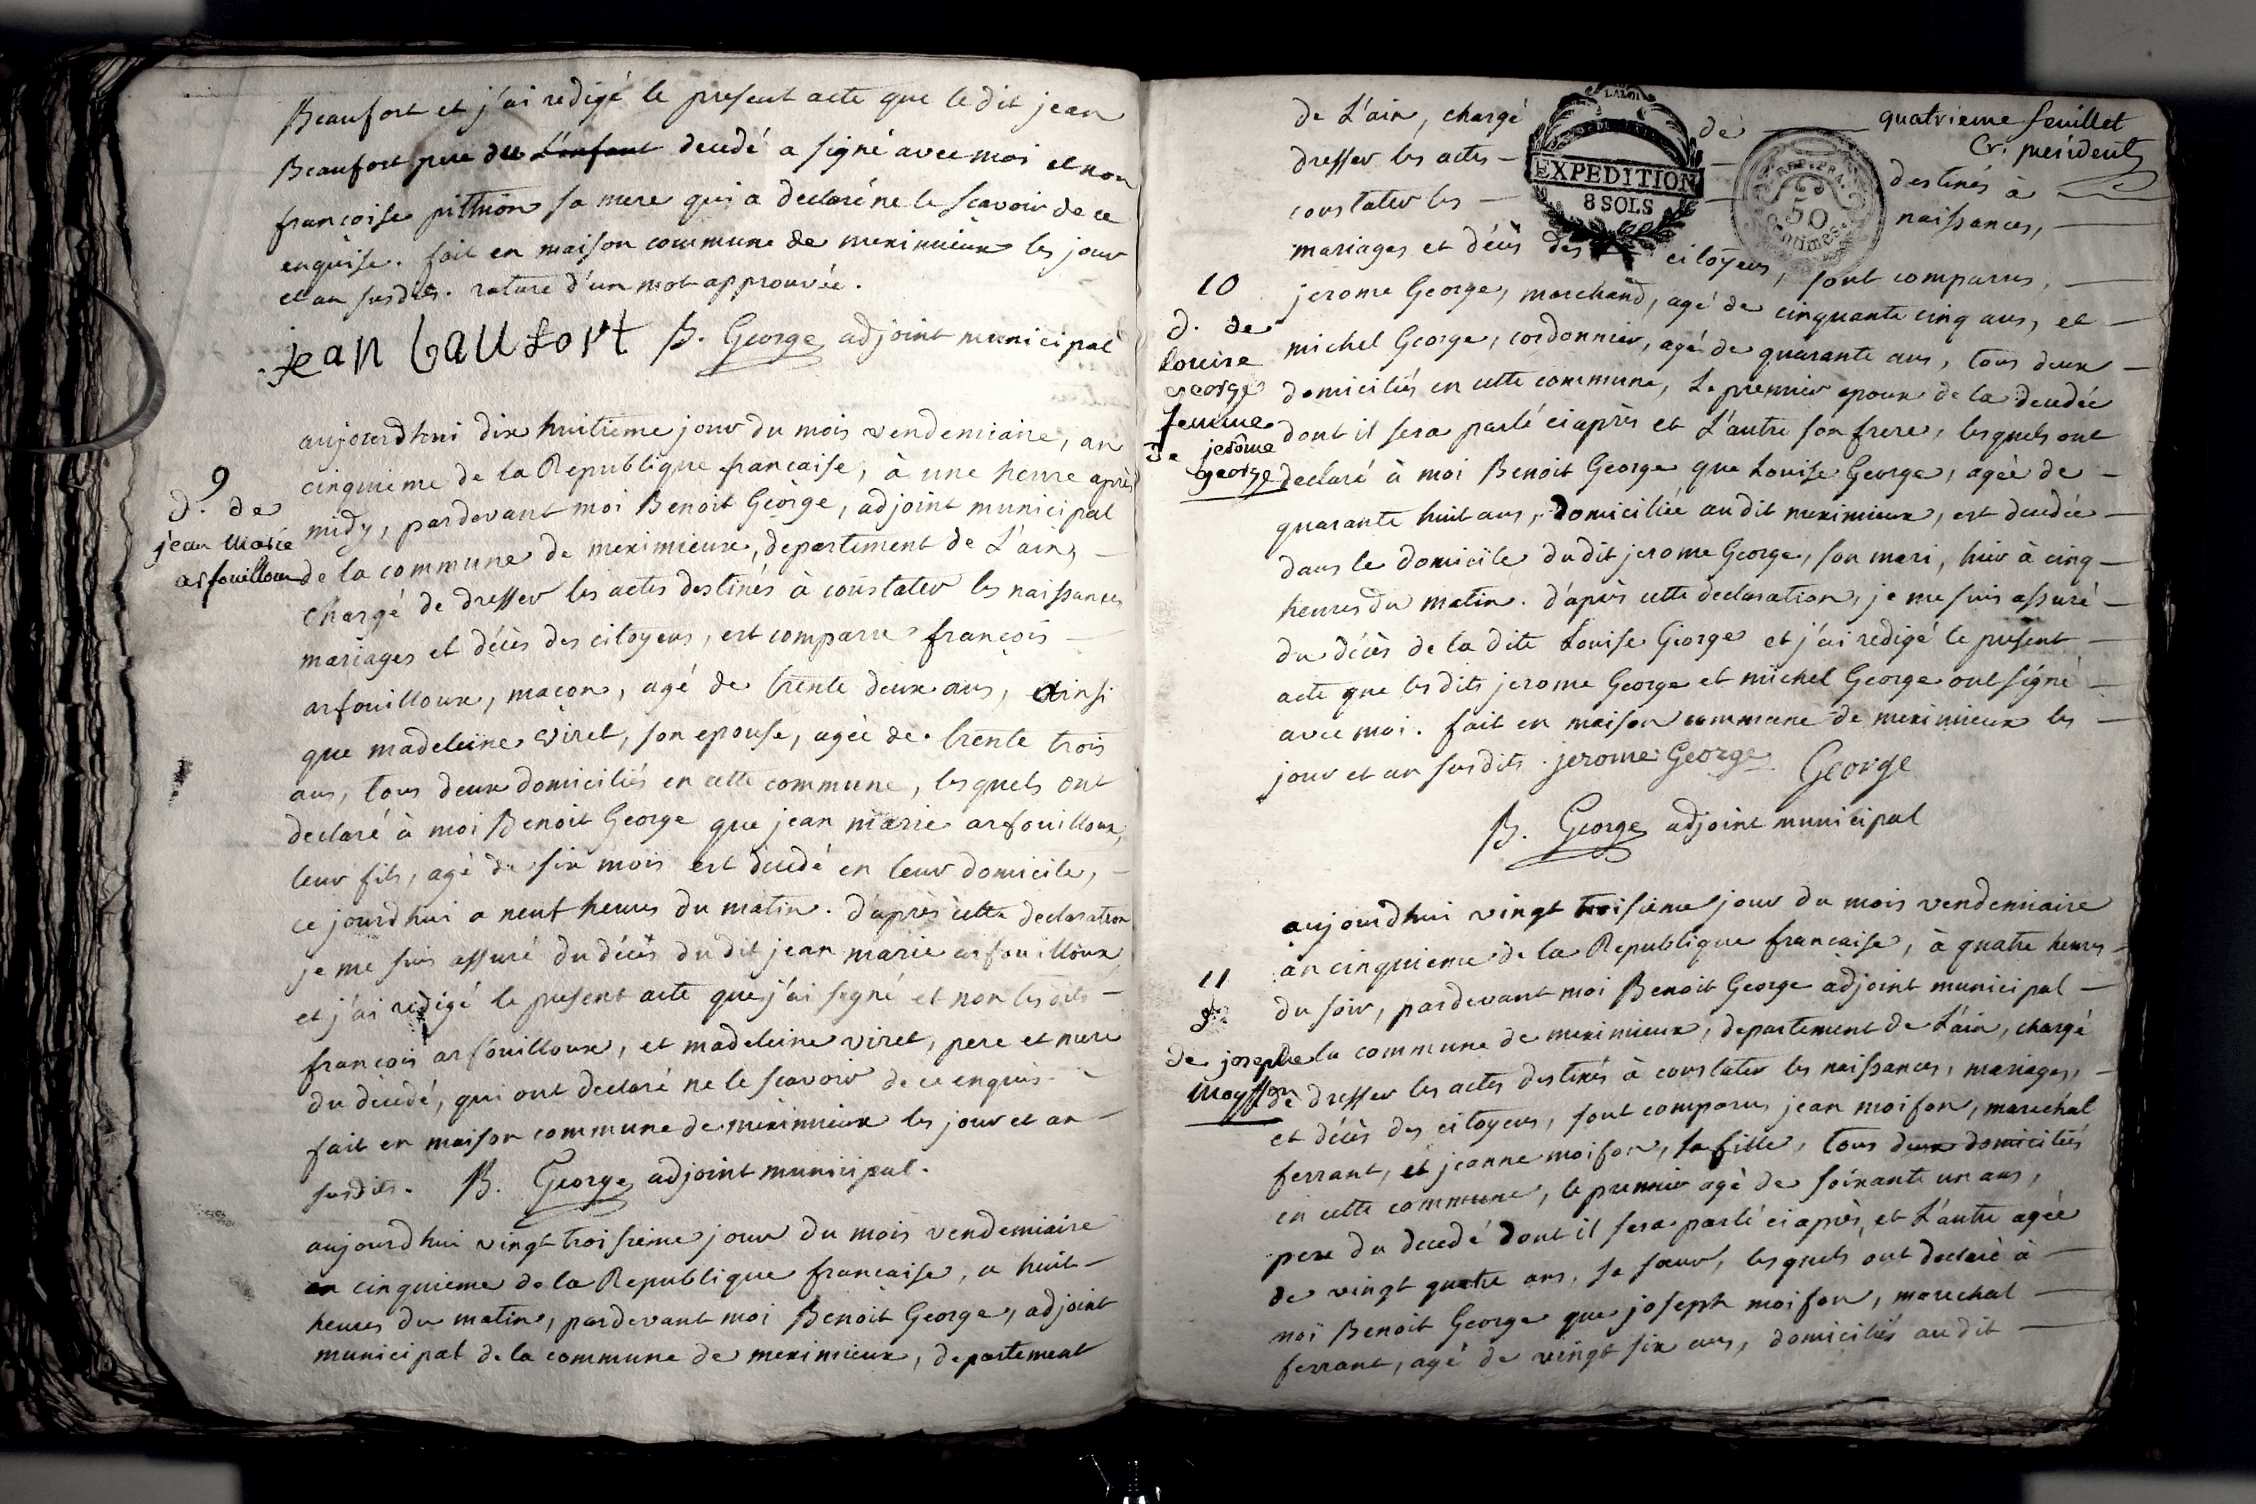 Beaufort et j'ai redigé le present acte que le dit jean
Beaufort pere du L'enfant decedé a signé avec moi et non
francoise pithion sa mere qui a declaré ne le scavoir de ce
enquise. fait en maison commune de meximieux les jour
et an susdits. rature d'un mot approuvée.
jean baufort B. George adjoint municipal
aujourdhui dix huitieme jour du mois vendemiaire, an
cinquieme de la Republique francaise, à une heure après
9
d. de
jean marie
arfouilloux
midy, pardevant moi Benoit George, adjoint municipal
de la commune de meximieux, departement de L'ain, -
chargé de dresser les actes destinés à constater les naissances
mariages et décès des citoyens, est comparu francois -
arfouilloux, macon, agé de trente deux ans, ainsi
que madeleine viret, son epouse, agée de trente trois
ans, tous deux domiciliés en cette commune, lesquels ont
declaré à moi Benoit George que jean marie arfouilloux,
leur fils, agé de six mois est decedé en leur domicile, -
ce jourdhui a neuf heures du matin. d'après cette declaration
je me suis assuré du décès du dit jean marie arfouilloux
et j'ai redigé le present acte que j'ai signé et non les dits -
francois arfouilloux, et madeleine viret, pere et mere
du décédé, qui ont declaré ne le scavoir de ce enquis. -
fait en maison commune de meximieux les jour et an -
susdits. B. George adjoint municipal.
aujourdhui vingt troisieme jour du mois vendemiaire
an cinquieme de la Republique francaise, a huit -
heures du matin, pardevant moi Benoit George, adjoint
municipal de la commune de meximieux, departement
quatrieme feuillet
Cr. president
LA LOI
EXPEDITION
8 SOLS
50
Centimes
de L'ain, chargé de
dresser les actes - destinés à
constater les - naissances, -
mariages et décès des citoyens, sont comparus, -
10
d. de
louise
george
femme
de jerôme
george
jerome George, marchand, agé de cinquante cinq ans, et -
michel George, cordonnier, agé de quarante ans, tous deux -
domiciliés en cette commune, Le premier epoux de la decedée
dont il sera parlé ci après et L'autre son frere, lesquels ont
declaré à moi Benoit George que Louise George, agée de -
quarante huit ans, domiciliée audit meximieux, est decedée -
dans le domicile dudit jerome George, son mari, hier à cinq -
heures du matin. d'après cette declaration, je me suis assuré -
du décès de la dite Louise George et j'ai redigé le present -
acte que les dits jerome George et michel George ont signé -
avec moi. fait en maison commune de meximieux les -
jour et an susdits. jerome George George
B. George adjoint municipal
aujourdhui vingt troisieme jour du mois vendemiaire
an cinquieme de la Republique francaise, à quatre heures -
11
d.
de joseph
Moyffon
du soir, pardevant moi Benoit George adjoint municipal -
de la commune de meximieux, departement de L'ain, chargé
de dresser les actes destinés à constater les naissances, mariages, -
et décès des citoyens, sont comparus jean moifon, marechal
ferrant, et jeanne moifon, sa fille, tous deux domiciliés
en cette commune, le premier agé de soixante un ans,
pere du decedé dont il sera parlé ci après, et L'autre agée
de vingt quatre ans, sa sœur, lesquels ont declaré à -
moi Benoit George que joseph moifon, marechal -
ferrant, agé de vingt six ans, domicilié au dit -